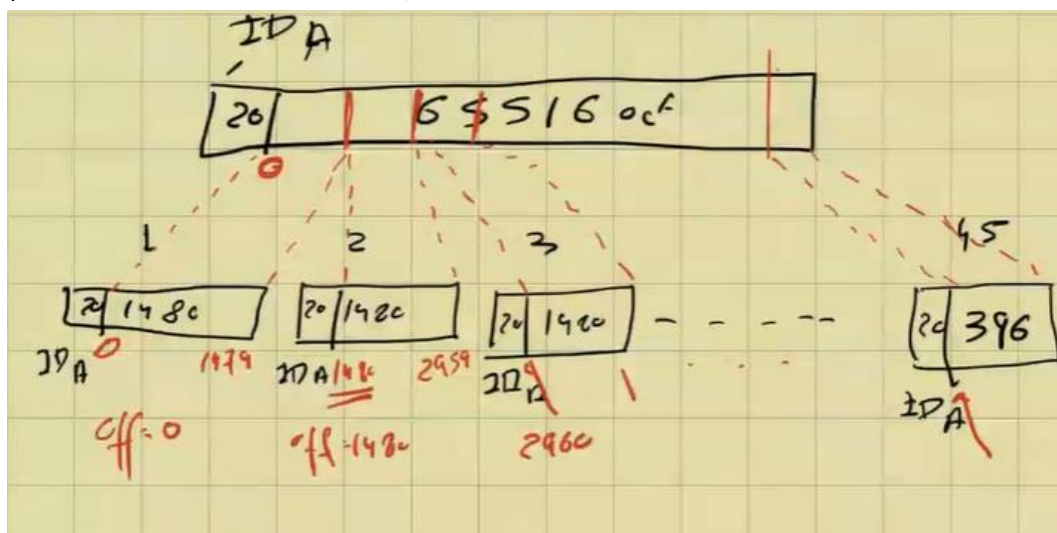 ID A
20 65516 oct
1 2 3 45
20 1480 20 1480 20 1480 - - - -- 20 396
ID A 0 1479 ID A 1480 2959 ID A ID A
off=0 off=1480 2960